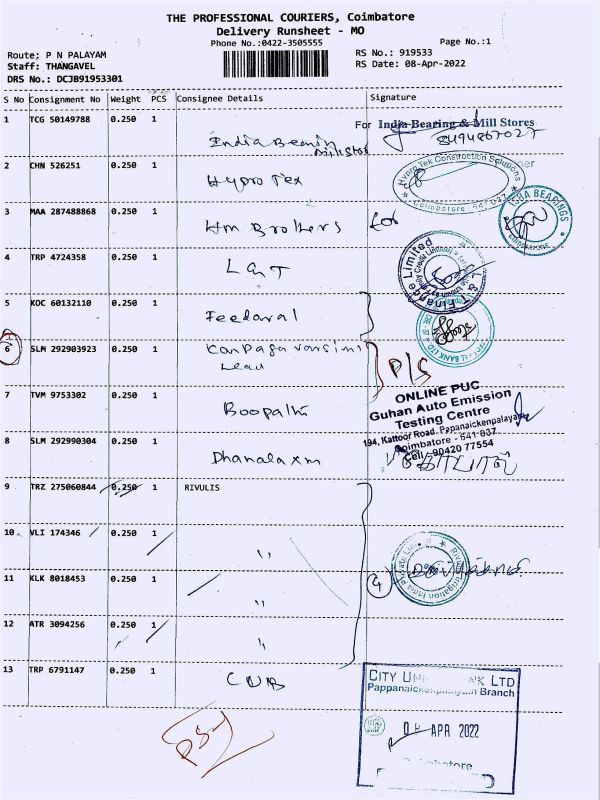 THE PROFESSIONAL COURIERS, Coimbatore
Delivery Runsheet - MO
Phone No.:0422-3505555
Page No.:1
Route; P N PALAYAM
Staff: THANGAVEL
DRS No.: DCJB91953301
RS No.: 919533
RS Date: 08-Apr-2022
S No Consignment No Weight PCS Consignee Details Signature
1 TCG 50149788 0.250 1 India Bearin
For India Bearing & Mill Stores
2 CHN 526251 0.250 1 Hypro Tex
Hypro Tek Construction Solutions
Coimbatore - 641 037
3 MAA 287488868 0.250 1 Hm Brothers for
ISHA BEARINGS
COIMBATORE
4 TRP 4724358 0.250 1 L&T
L & T Finance Limited
5 KOC 60132110 0.250 1 Feedaral
6 SLM 292903923 0.250 1
P/S
7 TVM 9753302 0.250 1 Boopathi
ONLINE PUC
Guhan Auto Emission
Testing Centre
194, Kattoor Road, Papanaickenpalayam
Coimbatore - 641 037
Cell: 90420 77554
8 SLM 292990304 0.250 1 Dhanalaxm
9 TRZ 275060844 0.250 1 RIVULIS
10 VLI 174346 0.250 1 "
11 KLK 8018453 0.250 1 "
Rivulis Irrigation India Private Limited
4
12 ATR 3094256 0.250 1 "
13 TRP 6791147 0.250 1 CUB
CITY UN NK LTD
Pappanaickenpalayam Branch
08 APR 2022
Coimbatore
PS-1